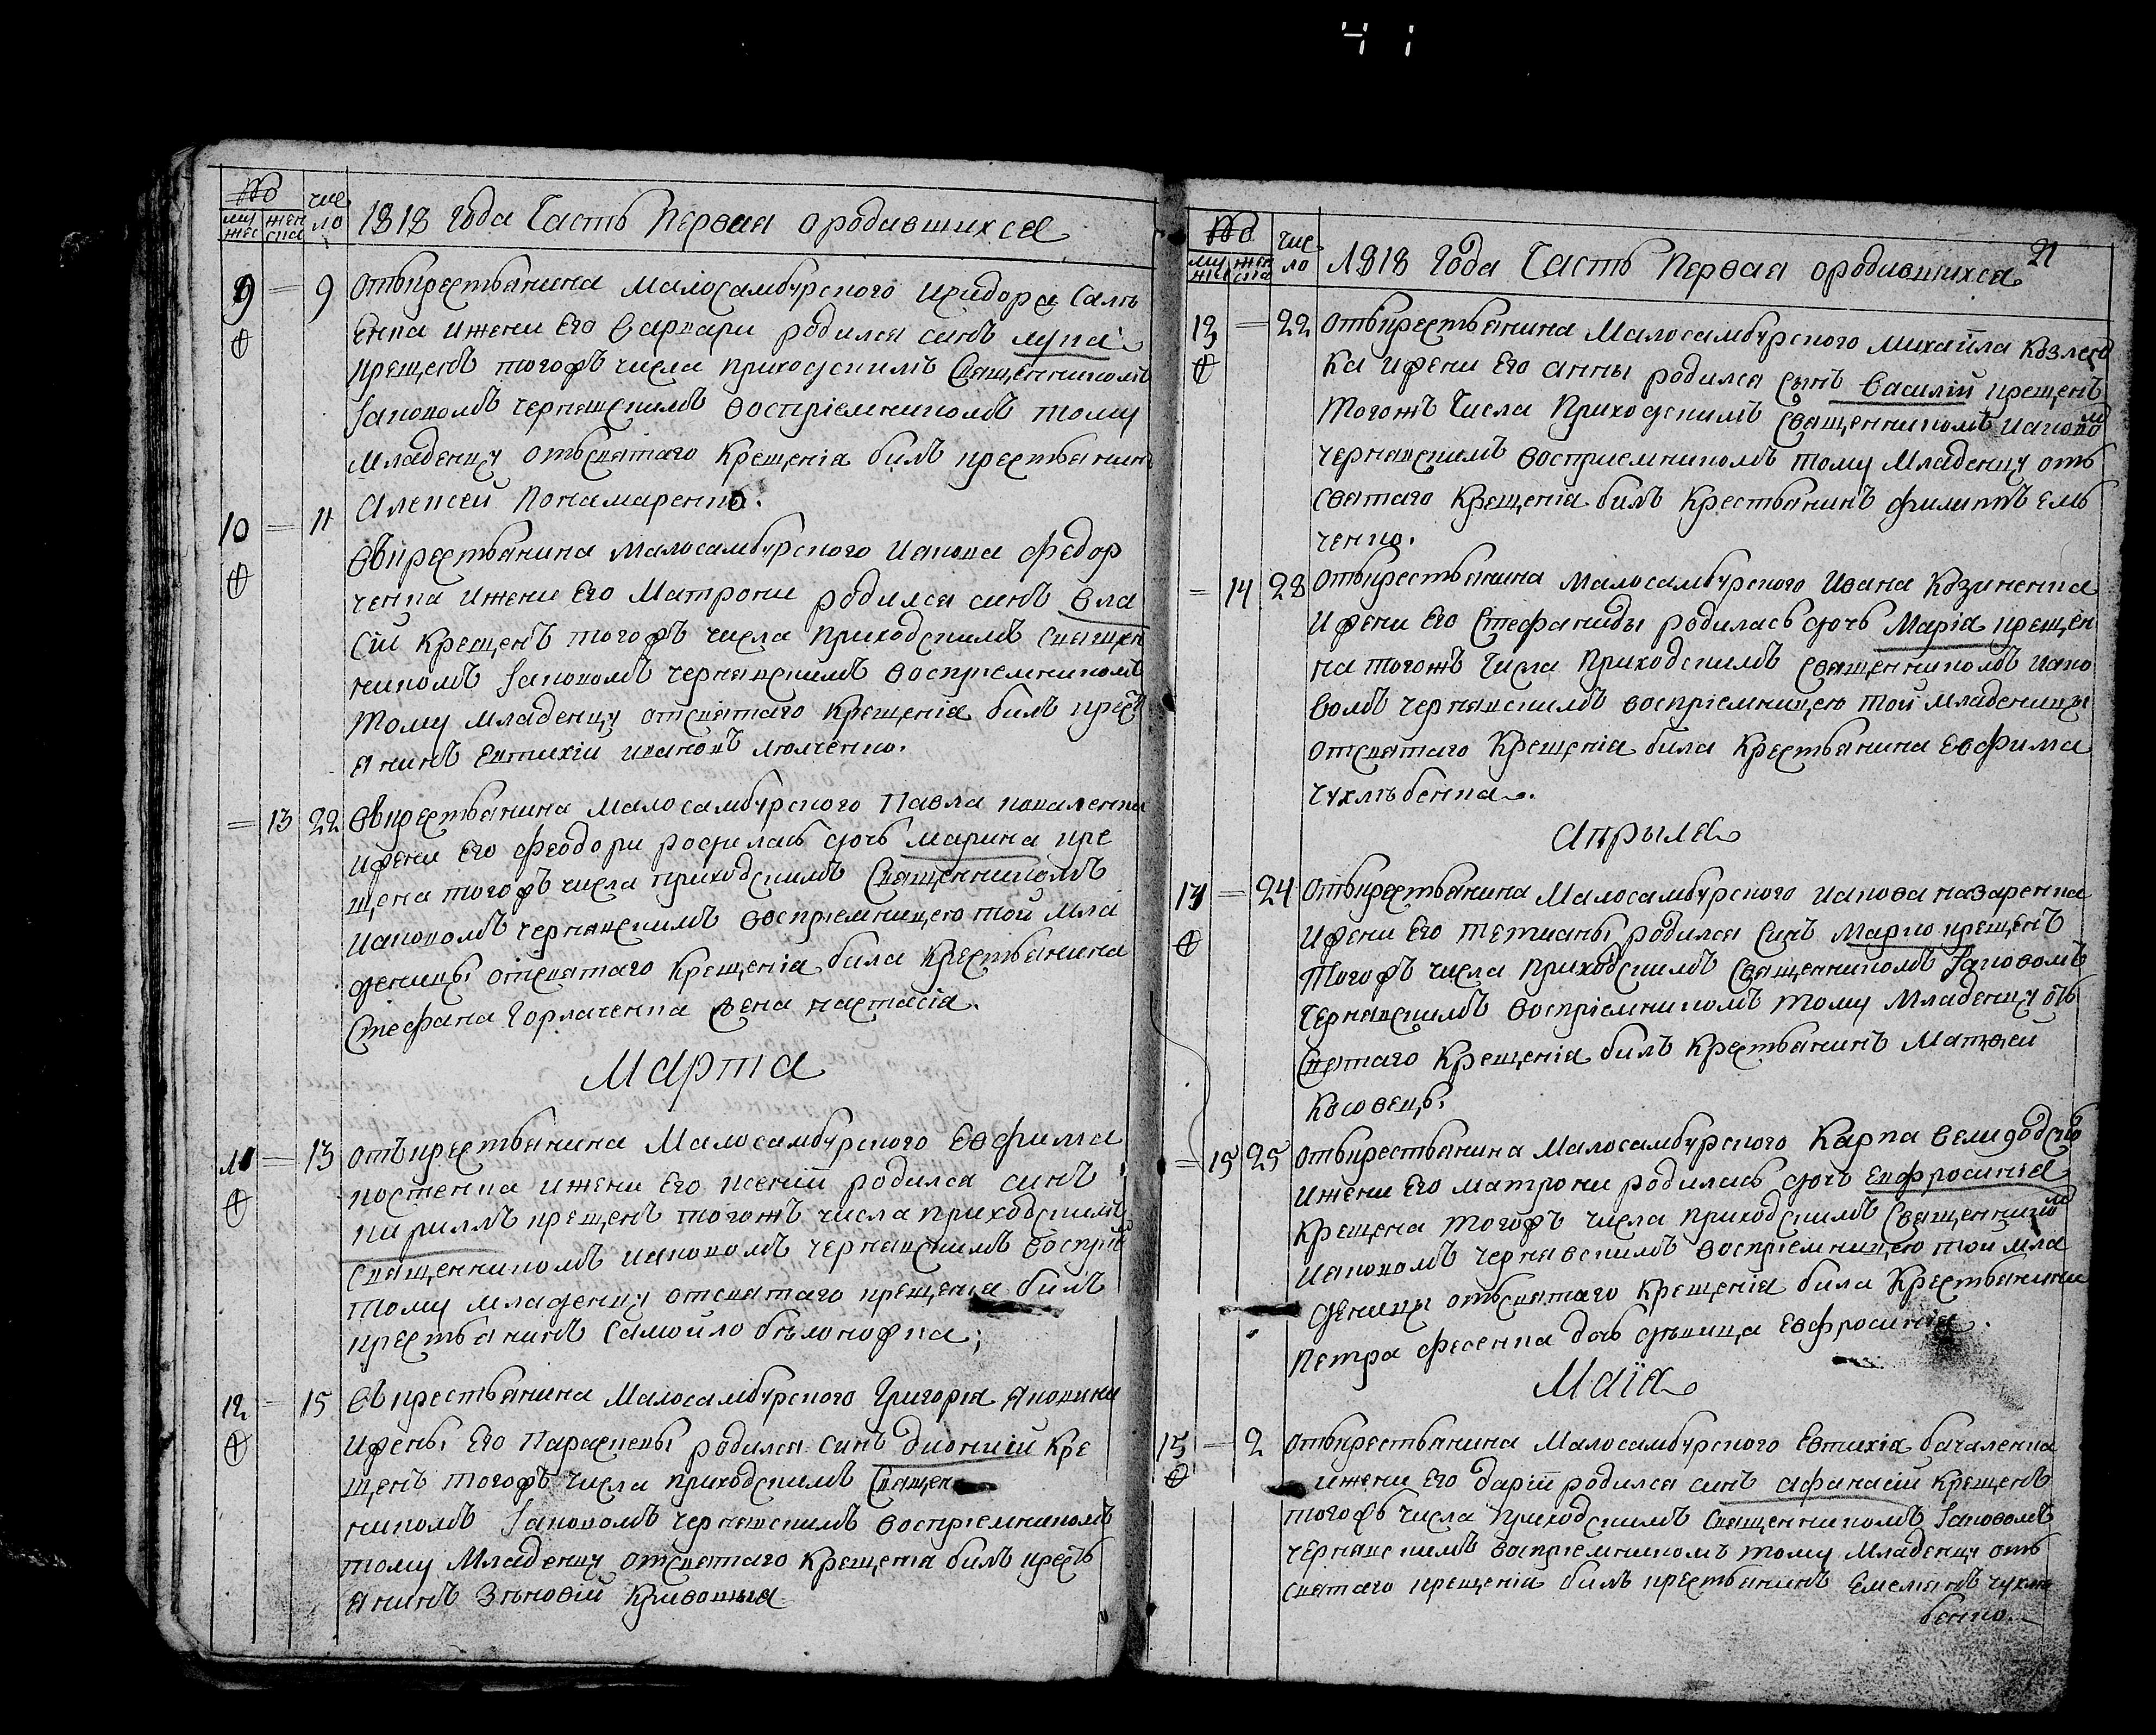 41
№
чис
ло
му
жес
жен
ска
1818 года Часть Первая о родившихся
9 = 9 Отъ крестьянина малосамбурского Исидора Сало
енка и жени его Варвари родился синъ лука
крещенъ тогожъ числа приходскимъ Священникомъ
Іаковомъ чернявскимъ воспріемникомъ тому
младенцу отъ святаго Крещенія билъ крестьянин
Алексей Понамаренко.
10 = 11 Отъ крестьянина малосамбурского Иакова Федор
ченка и жени его Матрони родился синъ Вла
сій Крещенъ тогожъ числа приходскимъ священ
никомъ Іаковомъ чернявскимъ воспріемникомъ
тому младенцу от святаго Крещенія билъ крест
янинъ Евтихій ивановъ
= 13 22 Отъ крестьянина малосамбурского Павла коваленка
и жени его Феодори родилась дочь марина кре
щена тогожъ числа приходскимъ Священникомъ
Иаковомъ чернявскимъ воспріемницею той мла
деницы от святаго Крещенія била Крестьянина
Стефана Горлаченка жена настасія.
Марта
11 = 13 отъ крестьянина Малосамбурского Евфима
костенка и жени его ксеніи родился синъ
кириллъ крещенъ тогожъ числа приходскимъ
священникомъ иаковомъ чернявскимъ воспріем
тому младенцу от святаго крещенія билъ
крестьянинъ Самойло белоножка;
12 = 15 Отъ крестьянина Малосамбурского Григорія Яковини
и жены его Параскевы родился синъ дионисій Кре
щенъ тогожъ числа приходскимъ Священ
никомъ Іаковомъ чернявскимъ воспріемникомъ
тому младенцу от святаго Крещенія билъ крестъ
янинъ Зѣновій Кривошыя
№
чис
ло
му
жес
жен
ска
1818 Года Часть Первая о родившихся
21
13 = 22 Отъ крестьянина Малосамбурского Михайла Козлен
ка и жени его анны родился сынъ Василій крещенъ
тогожъ числа приходскимъ Священникомъ Иаковом
чернявскимъ воспріемникомъ тому младенцу отъ
святаго Крещенія билъ Крестьянинъ филиппъ емь
ченко.
= 14 28 отъ крестьянина малосамбурского Ивана Козиненка
и жени его Стефаниды родилась дочь Марія крещен
на тогожъ числа приходскимъ священникомъ Иако
вомъ чернявскимъ воспріемницею той младеницы
от святаго Крещенія била Крестьянина Евфима
чухлѣбенка.
Апрыля
14 = 24 Отъ крестьянина Малосамбурского Иакова назаренка
и жени его тетианы родился Синъ Марко крещенъ
тогожъ числа приходскимъ священникомъ Іаковомъ
чернявскимъ воспріемникомъ тому младенцу отъ
Святаго Крещенія билъ Крестьянинъ Матфей
Косовець.
= 15 25 Отъ крестьянина Малосамбурского Карпа
и жени его матрони родилась дочь Евфросинія
Крещена тогожъ числа приходскимъ Священником
Иаковомъ чернявскимъ воспріемницею той мла
деницы отъ святаго Крещенія била Крестьянини
Петра фесенка дочь дѣвица Евфросинія.
Маія
15 = 2 Отъ крестьянина Малосамбурского Евтихія бачаленка
и жени его даріи родился синъ афанасій Крещенъ
тогожъ числа приходскимъ священникомъ Іаковомъ
чернявскимъ воспріемникомъ тому младенцу отъ
святаго крещенія билъ крестьянинъ Емелянъ чухлѣ
бенко.